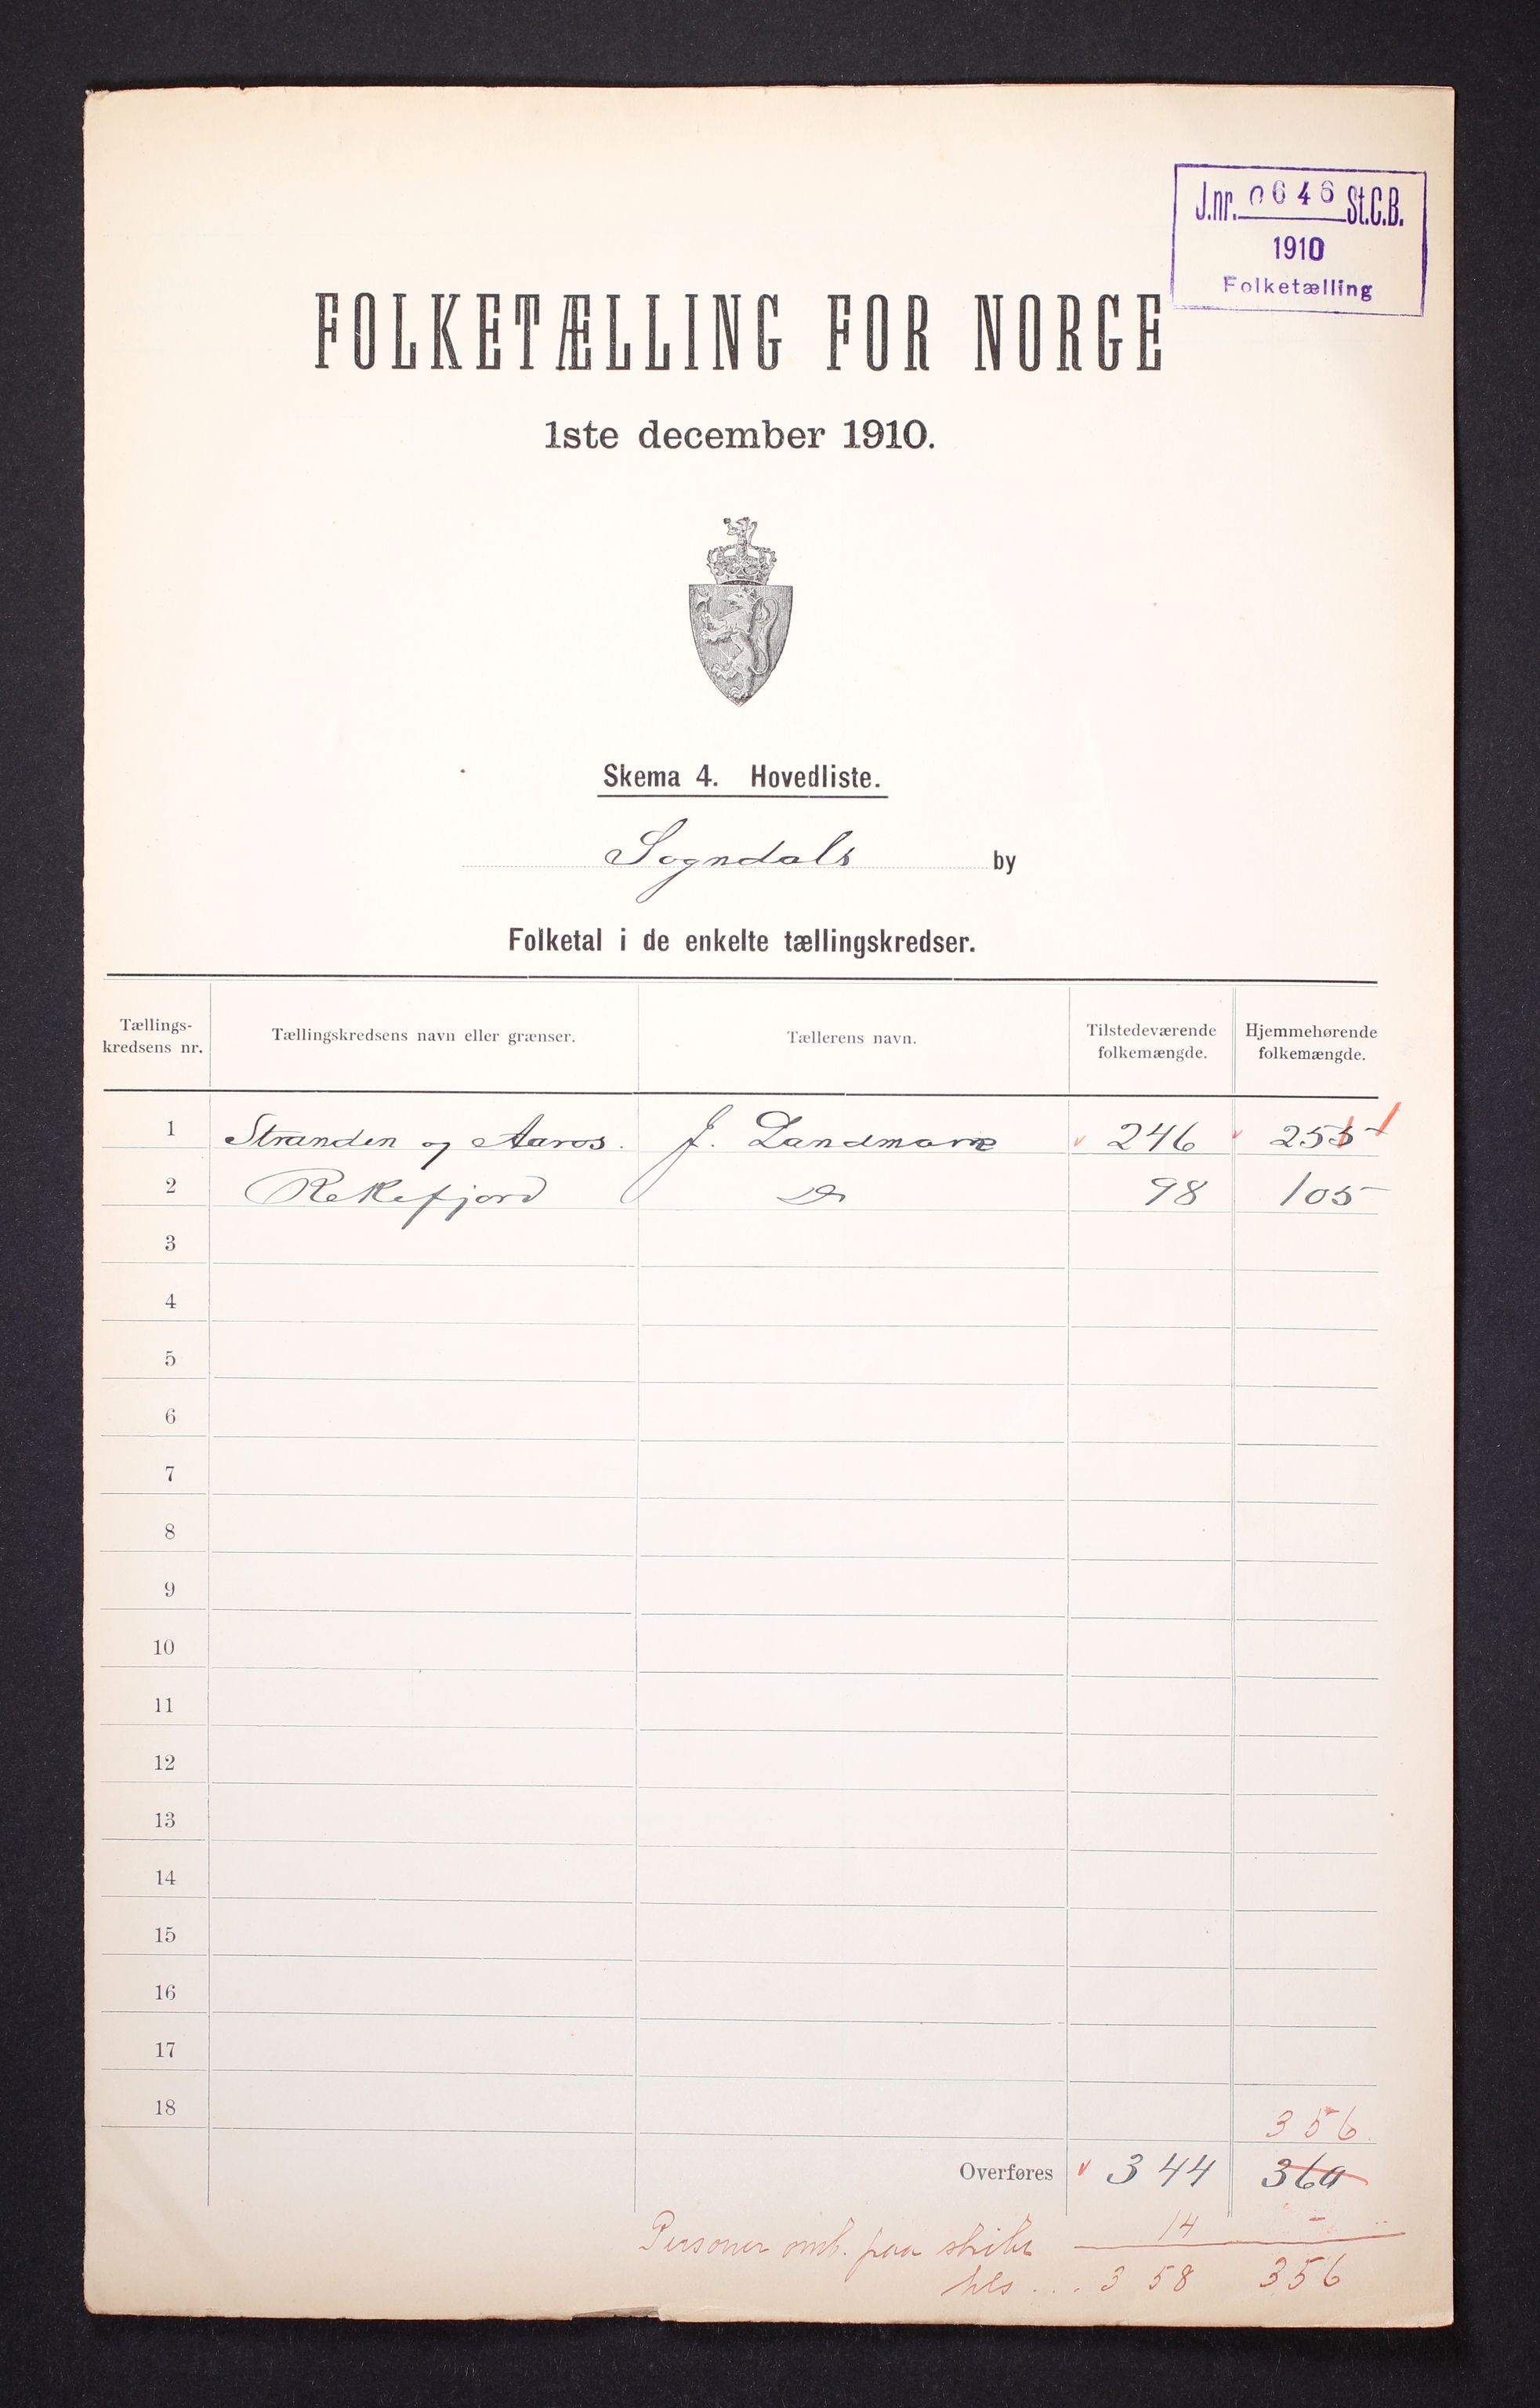 J.nr. 0646 St.C.B.
1910
Folketælling
FOLKETÆLLING FOR NORGE
1ste december 1910.
Skema 4. Hovedliste.
Sogndals by
Folketal i de enkelte tællingskredser.
Tællings-
kredsens nr.
Tællingskredsens navn eller grænser.
Tællerens navn.
Tilstedeværende
folkemængde.
Hjemmehørende
folkemængde.
1 Stranden og Aaros. J. Landmark 246 255 1
2 Rekefjord Do 98 105
3
4
5
6
7
8
9
10
11
12
13
14
15
16
17
18
356
Overføres 344 360
Personer omb. paa skibe 14 -
tils... 358 356